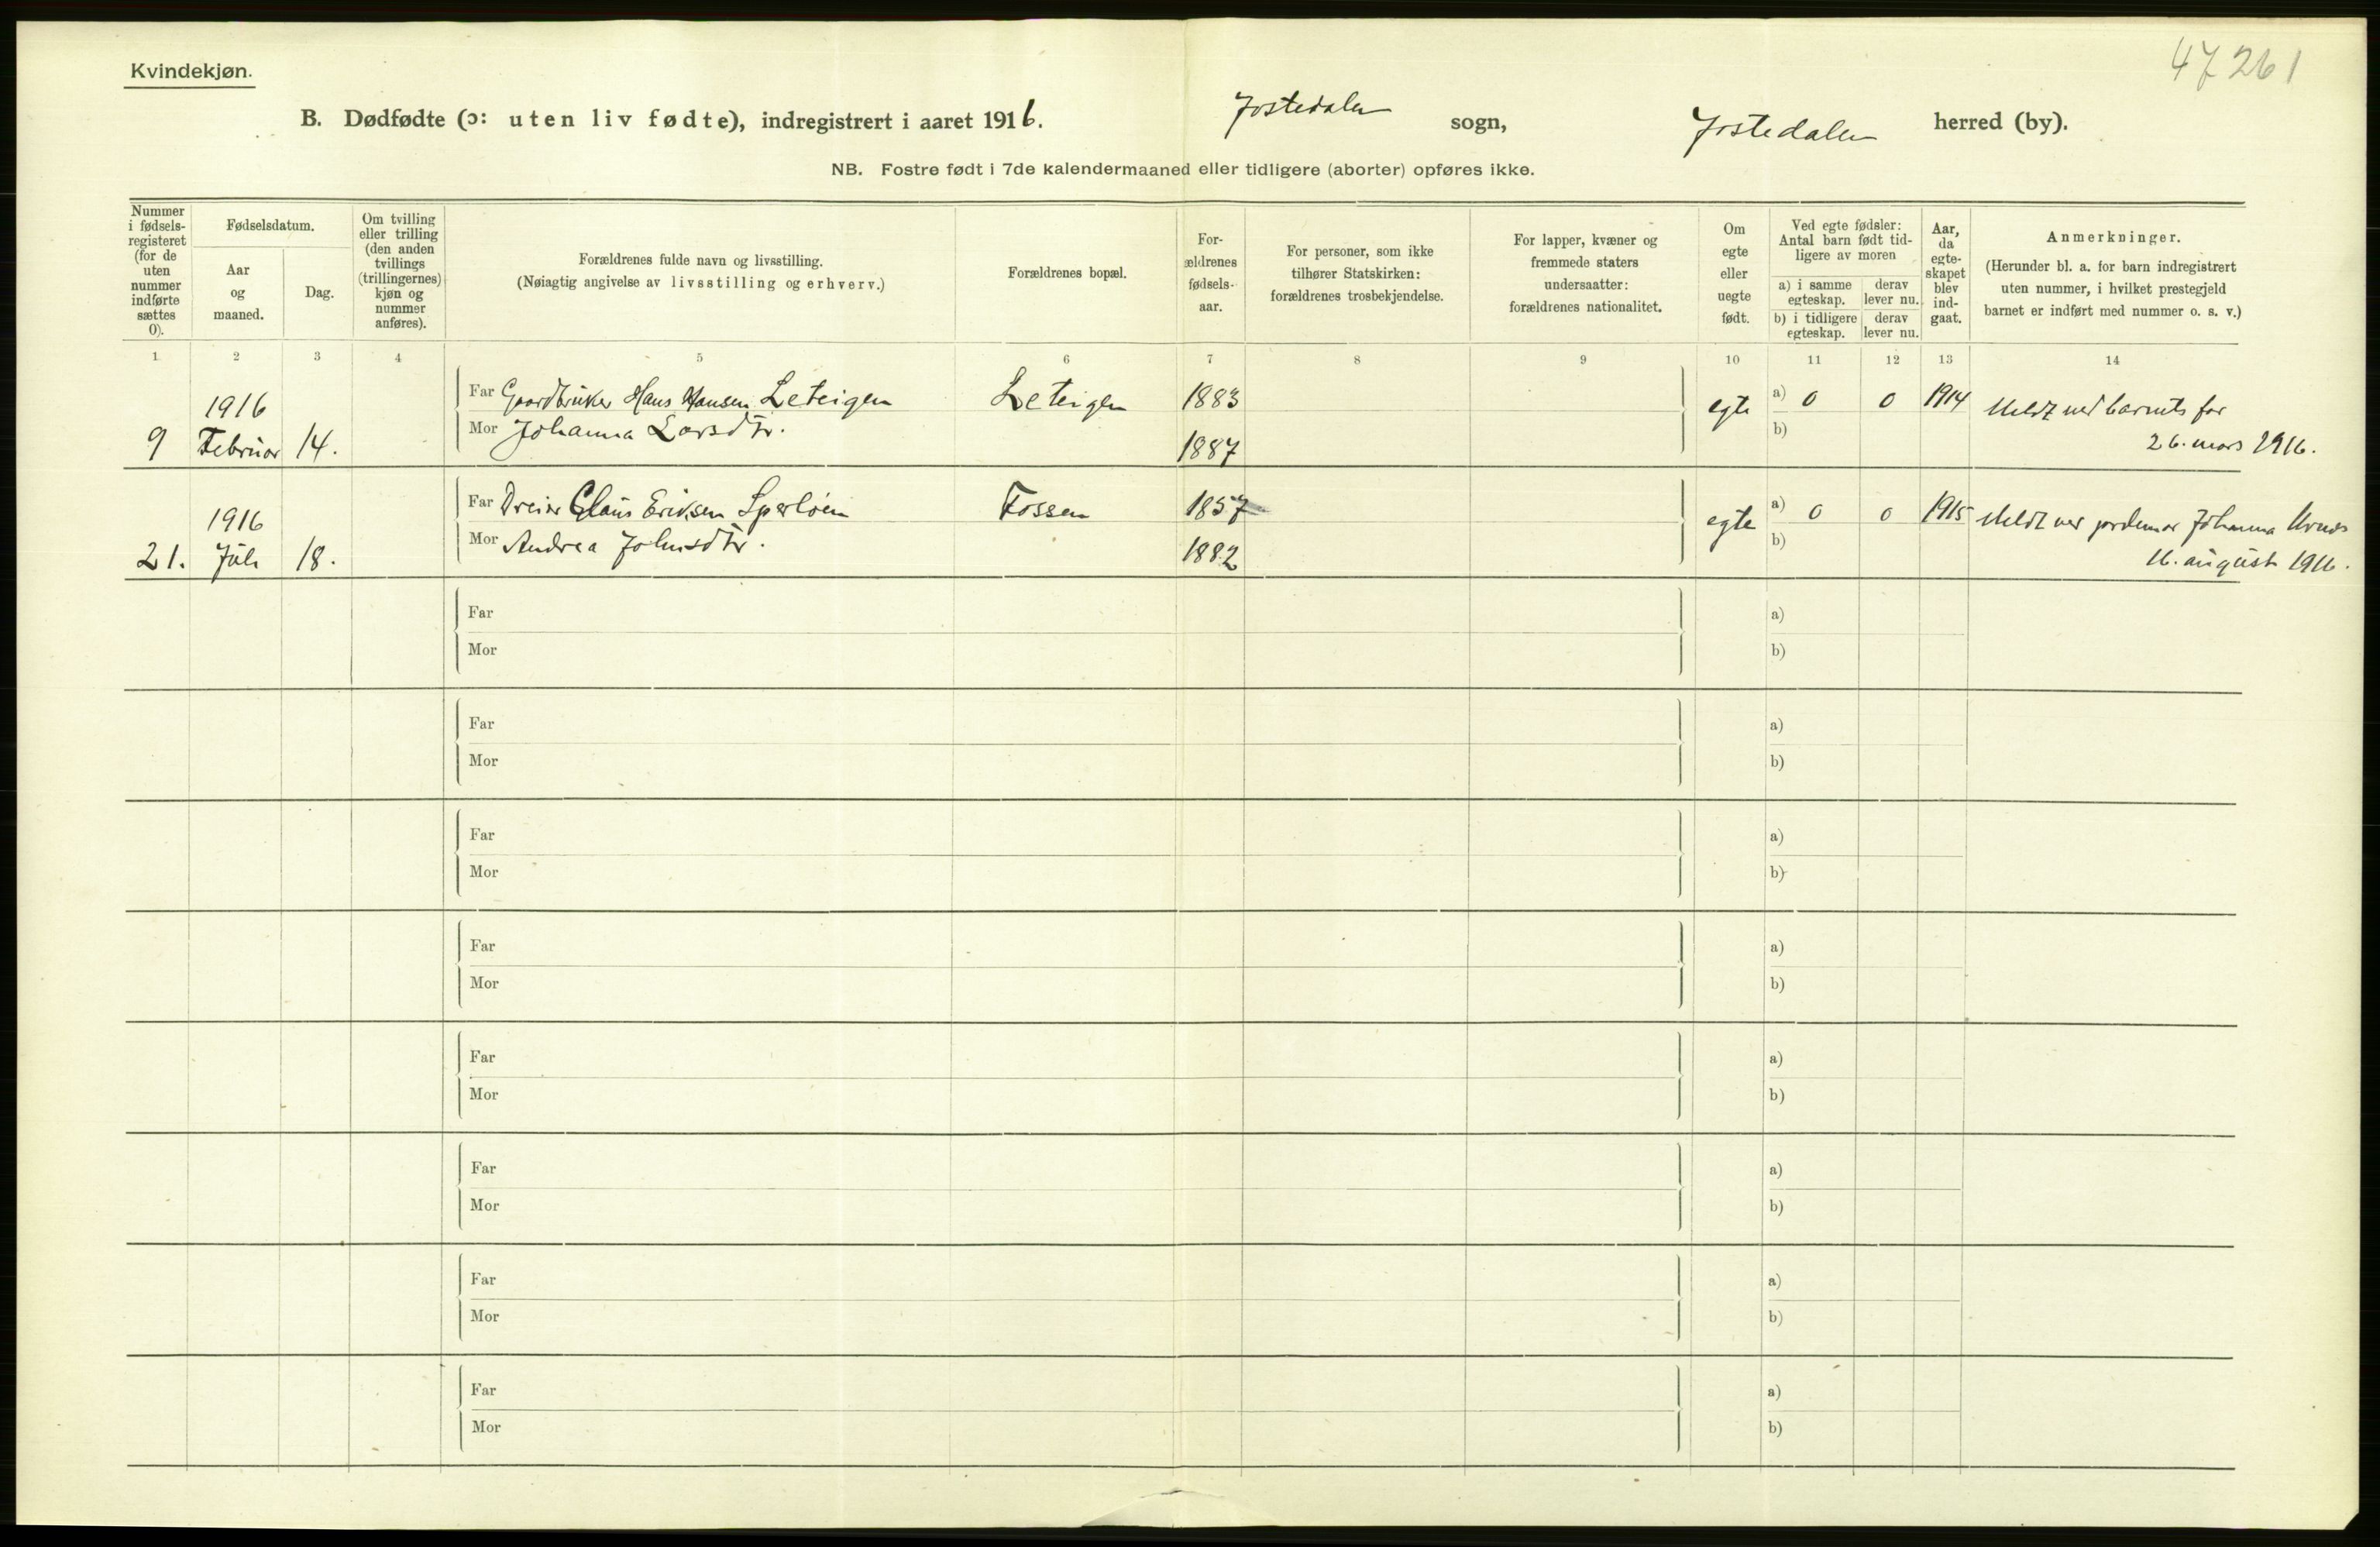 47261
Kvindekjøn.
B. Dødfødte (ɔ: uten liv fødte), indregistrert i aaret 1916. Jostedalen sogn, Jostedalen herred (by).
NB. Fostre født i 7de kalendermaaned eller tidligere (aborter) opføres ikke.
Nummer i fødsels-registeret (for de uten nummer indførte sættes 0).
Fødselsdatum.
Aar og maaned.
Dag.
Om tvilling eller trilling (den anden tvillings (trillingernes) kjøn og nummer anføres).
Forældrenes fulde navn og livsstilling.
(Nøiagtig angivelse av livsstilling og erhverv.)
Forældrenes bopæl.
For-ældrenes fødsels-aar.
For personer, som ikke tilhører Statskirken: forældrenes trosbekjendelse.
For lapper, kvæner og fremmede staters undersaatter: forældrenes nationalitet.
Om egte eller uegte født.
Ved egte fødsler: Antal barn født tid-ligere av moren
a) i samme egteskap.
derav lever nu.
b) i tidligere egteskap.
derav lever nu.
Aar, da egte-skapet blev ind-gaat.
Anmerkninger.
(Herunder bl. a. for barn indregistrert uten nummer, i hvilket prestegjeld barnet er indført med nummer o. s. v.)
1 2 3 4 5 6 7 8 9 10 11 12 13 14
1916 Far Gaardbruker Hans Hansen Leteigen Leteigen 1883 egte a) 0 0 1914 Meldt ved barnets far
9 Februar 14. Mor Johanna Larsdtr. 1887 b) 26. mars 1916.
1916 Far Dreier Claus Eriksen Sperløen Fossen 1857 egte a) 0 0 1915 Meldt ved jordemor Johanna
21. Juli 18. Mor Andrea Johnsdtr. 1882 b) 16. august 1916.
Far a)
Mor b)
Far a)
Mor b)
Far a)
Mor b)
Far a)
Mor b)
Far a)
Mor b)
Far a)
Mor b)
Far a)
Mor b)
Far a)
Mor b)